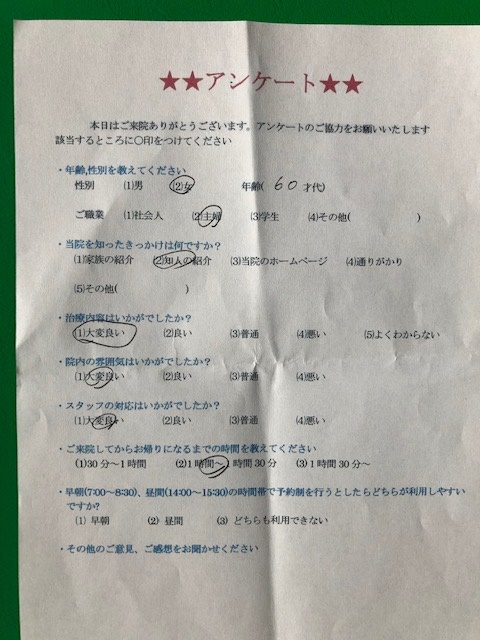 ★★アンケート★★
本日はご来院ありがとうございます。アンケートのご協力をお願いいたします
該当するところに○印をつけてください
・年齢,性別を教えてください
性別 (1)男 (2)女 年齢( 60 才代)
ご職業 (1)社会人 (2)主婦 (3)学生 (4)その他( )
・当院を知ったきっかけは何ですか?
(1)家族の紹介 (2)知人の紹介 (3)当院のホームページ (4)通りがかり
(5)その他( )
・治療内容はいかがでしたか?
(1)大変良い (2)良い (3)普通 (4)悪い (5)よくわからない
・院内の雰囲気はいかがでしたか?
(1)大変良い (2)良い (3)普通 (4)悪い
・スタッフの対応はいかがでしたか?
(1)大変良い (2)良い (3)普通 (4)悪い
・ご来院してからお帰りになるまでの時間を教えてください
(1)30分~1時間 (2)1時間~1時間30分 (3)1時間30分~
・早朝(7:00~8:30)、昼間(14:00~15:30)の時間帯で予約制を行うとしたらどちらが利用しやすい
ですか?
(1) 早朝 (2) 昼間 (3) どちらも利用できない
・その他のご意見、ご感想をお聞かせください